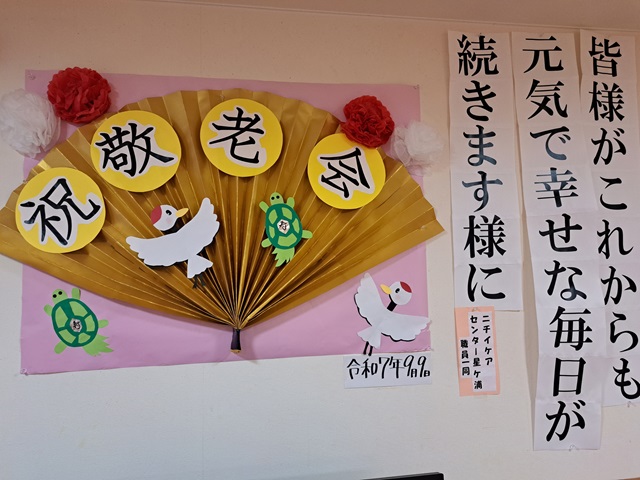 祝敬老会
寿
寿
令和7年9月9日
皆様がこれからも
元気で幸せな毎日が
続きます様に
ニチイケア
センター星ケ浦
職員一同